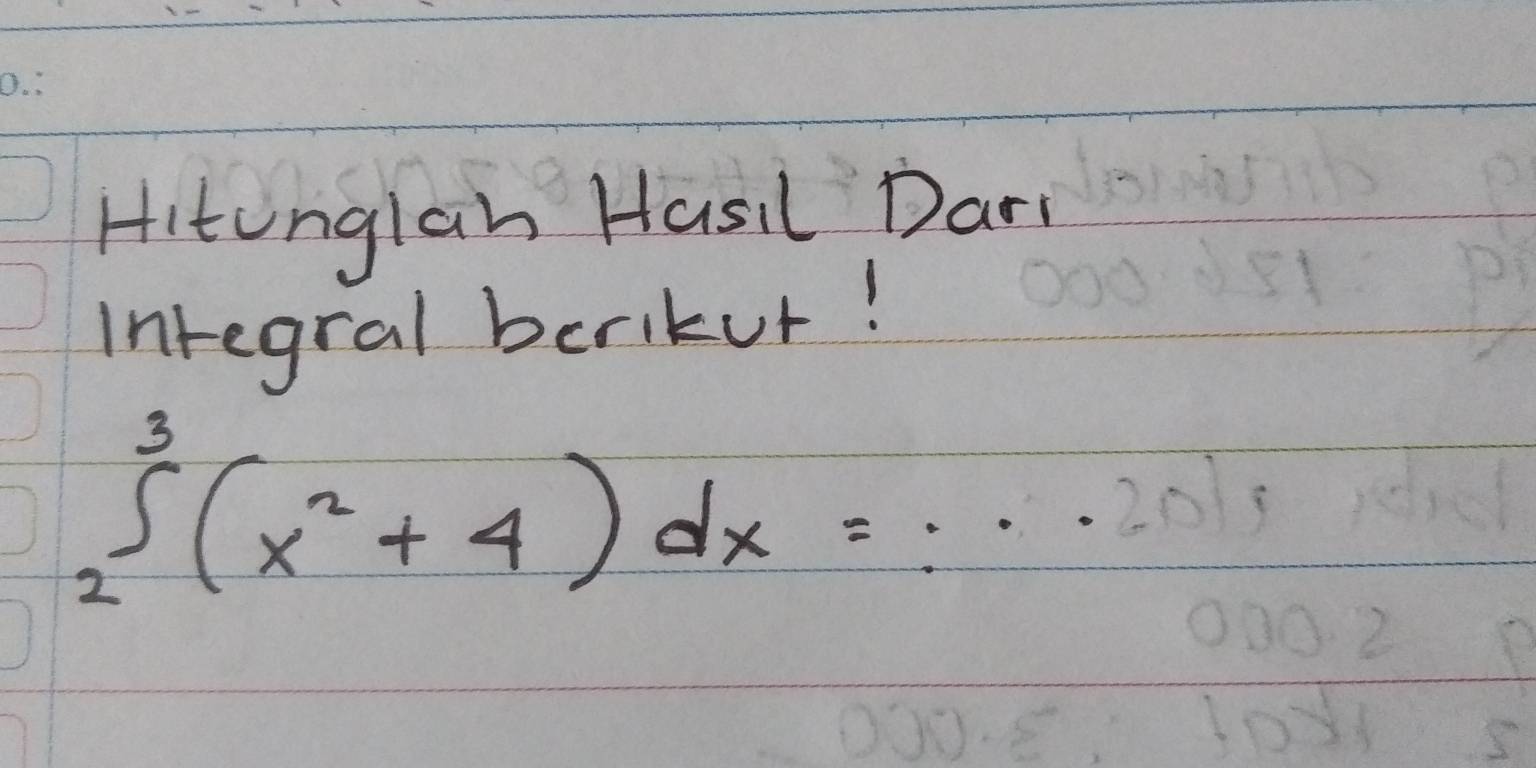 o.:
Hitunglah Hasil Dari
Integral berikut !
3
∫ (x² + 4) dx = . . .
2